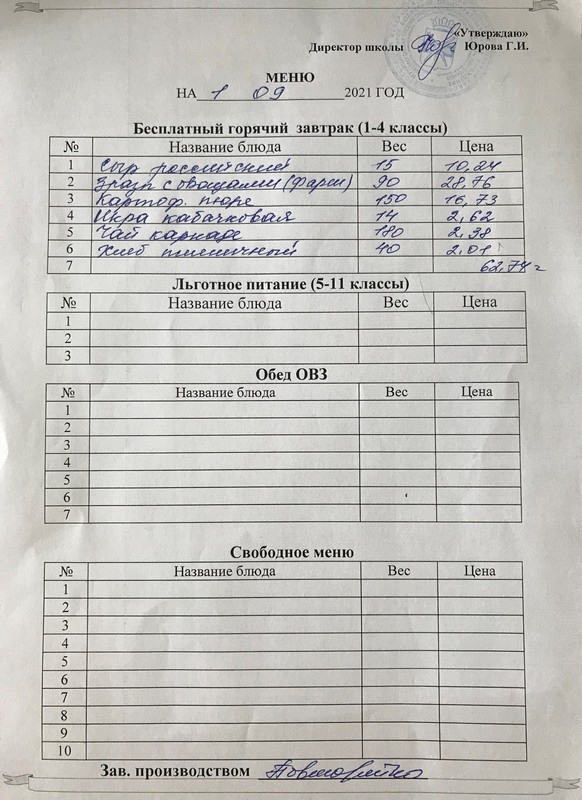 «Утверждаю»
Директор школы Юрова Г.И.
МЕНЮ
НА 1 09 2021 ГОД
Бесплатный горячий завтрак (1-4 классы)
№ Название блюда Вес Цена
1 Сыр российский 15 10,24
2 Зразы с овощами (фарш) 90 28,76
3 Картоф. пюре 150 16,73
4 Икра кабачковая 14 2,62
5 Чай каркаде 180 2,38
6 Хлеб пшеничный 40 2,01
7 62,74
Льготное питание (5-11 классы)
№ Название блюда Вес Цена
1
2
3
Обед ОВЗ
№ Название блюда Вес Цена
1
2
3
4
5
6
7
Свободное меню
№ Название блюда Вес Цена
1
2
3
4
5
6
7
8
9
10
Зав. производством